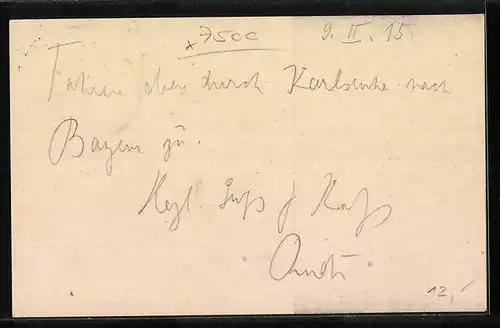 x 7500
9. II. 15.
Fahren eben durch Karlsruhe nach
Bayern zu.
Herzl. Gruß & Kuß
12,-